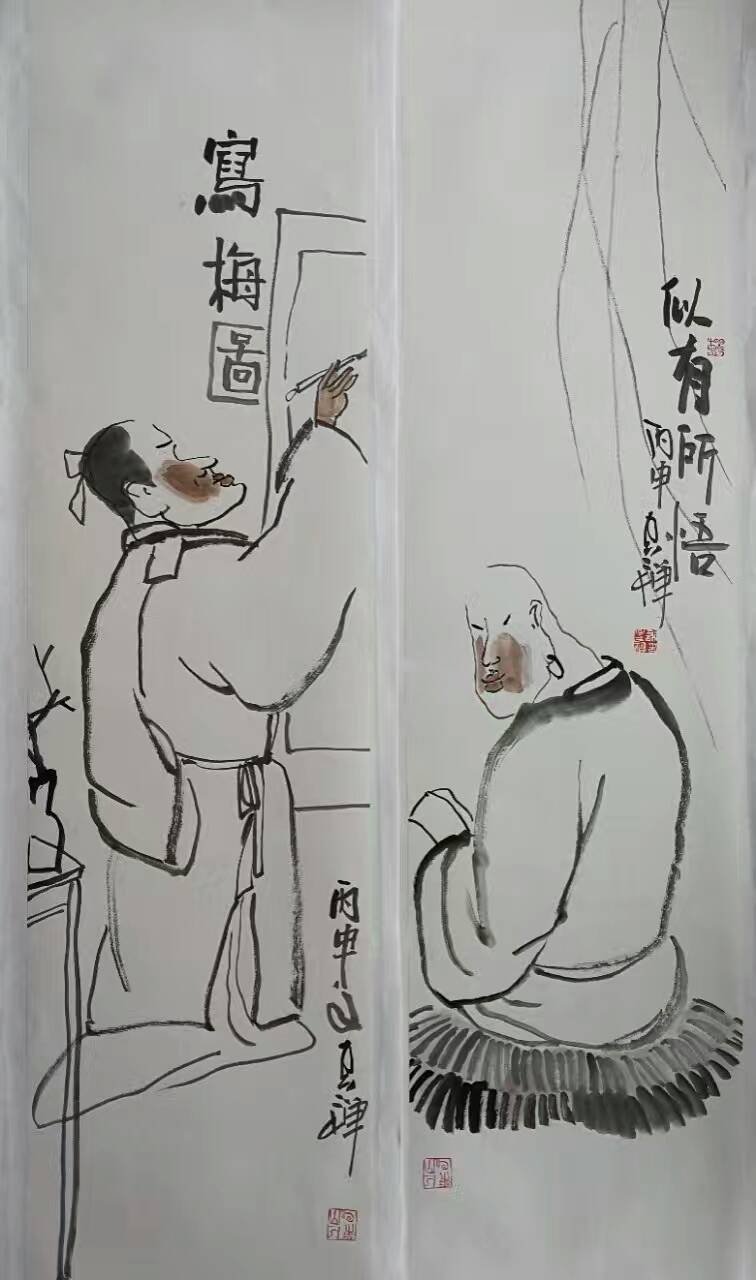 寫梅圖
丙申
真禅
似有所悟
丙申
真禅